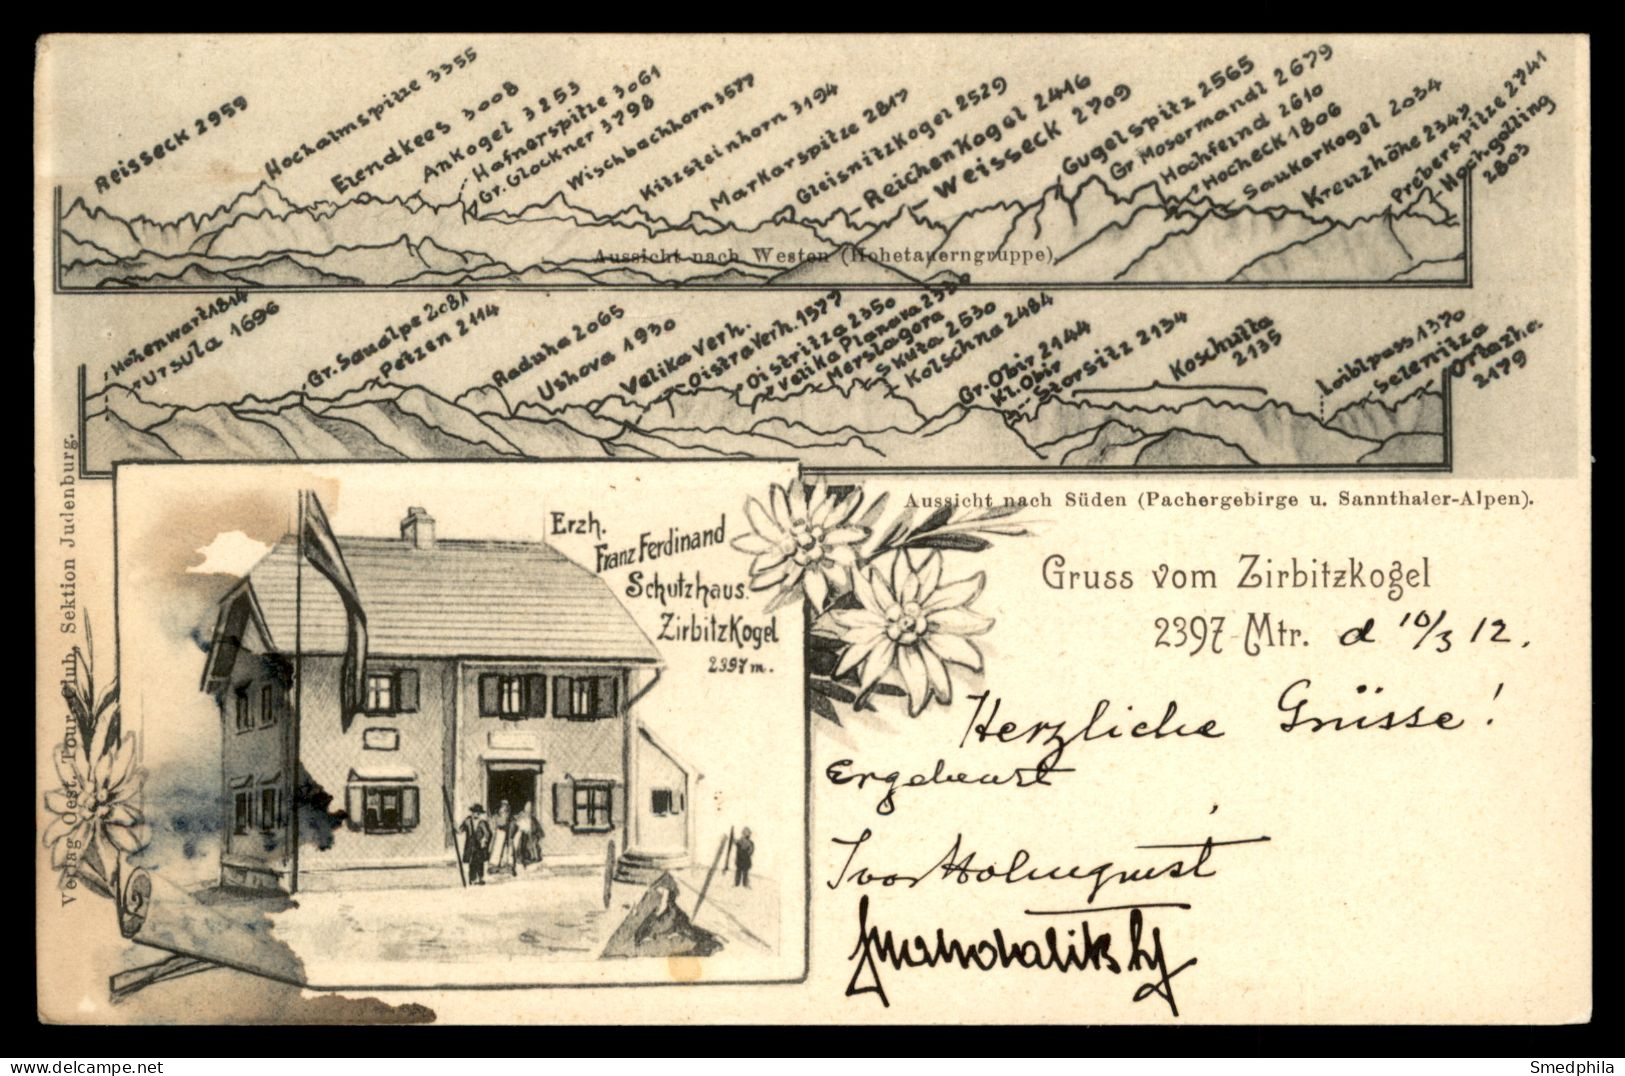 Reisseck 2959
Hochalmspitze 3355
Elendkees 3008
Ankogel 3253
Hafnerspitze 3061
Gr. Glockner 3798
Wischbachhorn 3577
Kitzsteinhorn 3194
Markarspitze 2817
Gleisnitzkogel 2529
Reichenkogel 2416
Weisseck 2709
Gugelspitz 2565
Gr Mosormandl 2679
Hochfeind 2610
Hocheck 1806
Saukarkogel 2034
Kreuzhöhe 2347
Preberspitze 2741
Hochgolling
2803
Aussicht nach Westen (Hohetauerngruppe).
Hohenwart 1814
Ursula 1696
Gr. Saualpe 2081
Petzen 2114
Raduha 2065
Ushova 1930
Velika Verh.
Oistra Verh. 1577
Oistritza 2350
Velika Planava
Merslagora
Skuta 2530
Kolschna 2484
Gr. Obir 2144
Kl. Obir
Storsitz 2134
Koschutta
2135
Loiblpass 1370
Selenitza
Ortazhe.
2179
Aussicht nach Süden (Pachergebirge u. Sannthaler-Alpen).
Erzh.
Franz Ferdinand
Schutzhaus.
Zirbitzkogel
2397 m.
Gruss vom Zirbitzkogel
2397 Mtr. d 10/3 12.
Herzliche Grüsse!
Ergebenst
Ivar Holmquist
Verlag Oest. Tour.-Club, Sektion Judenburg.
Smedphila